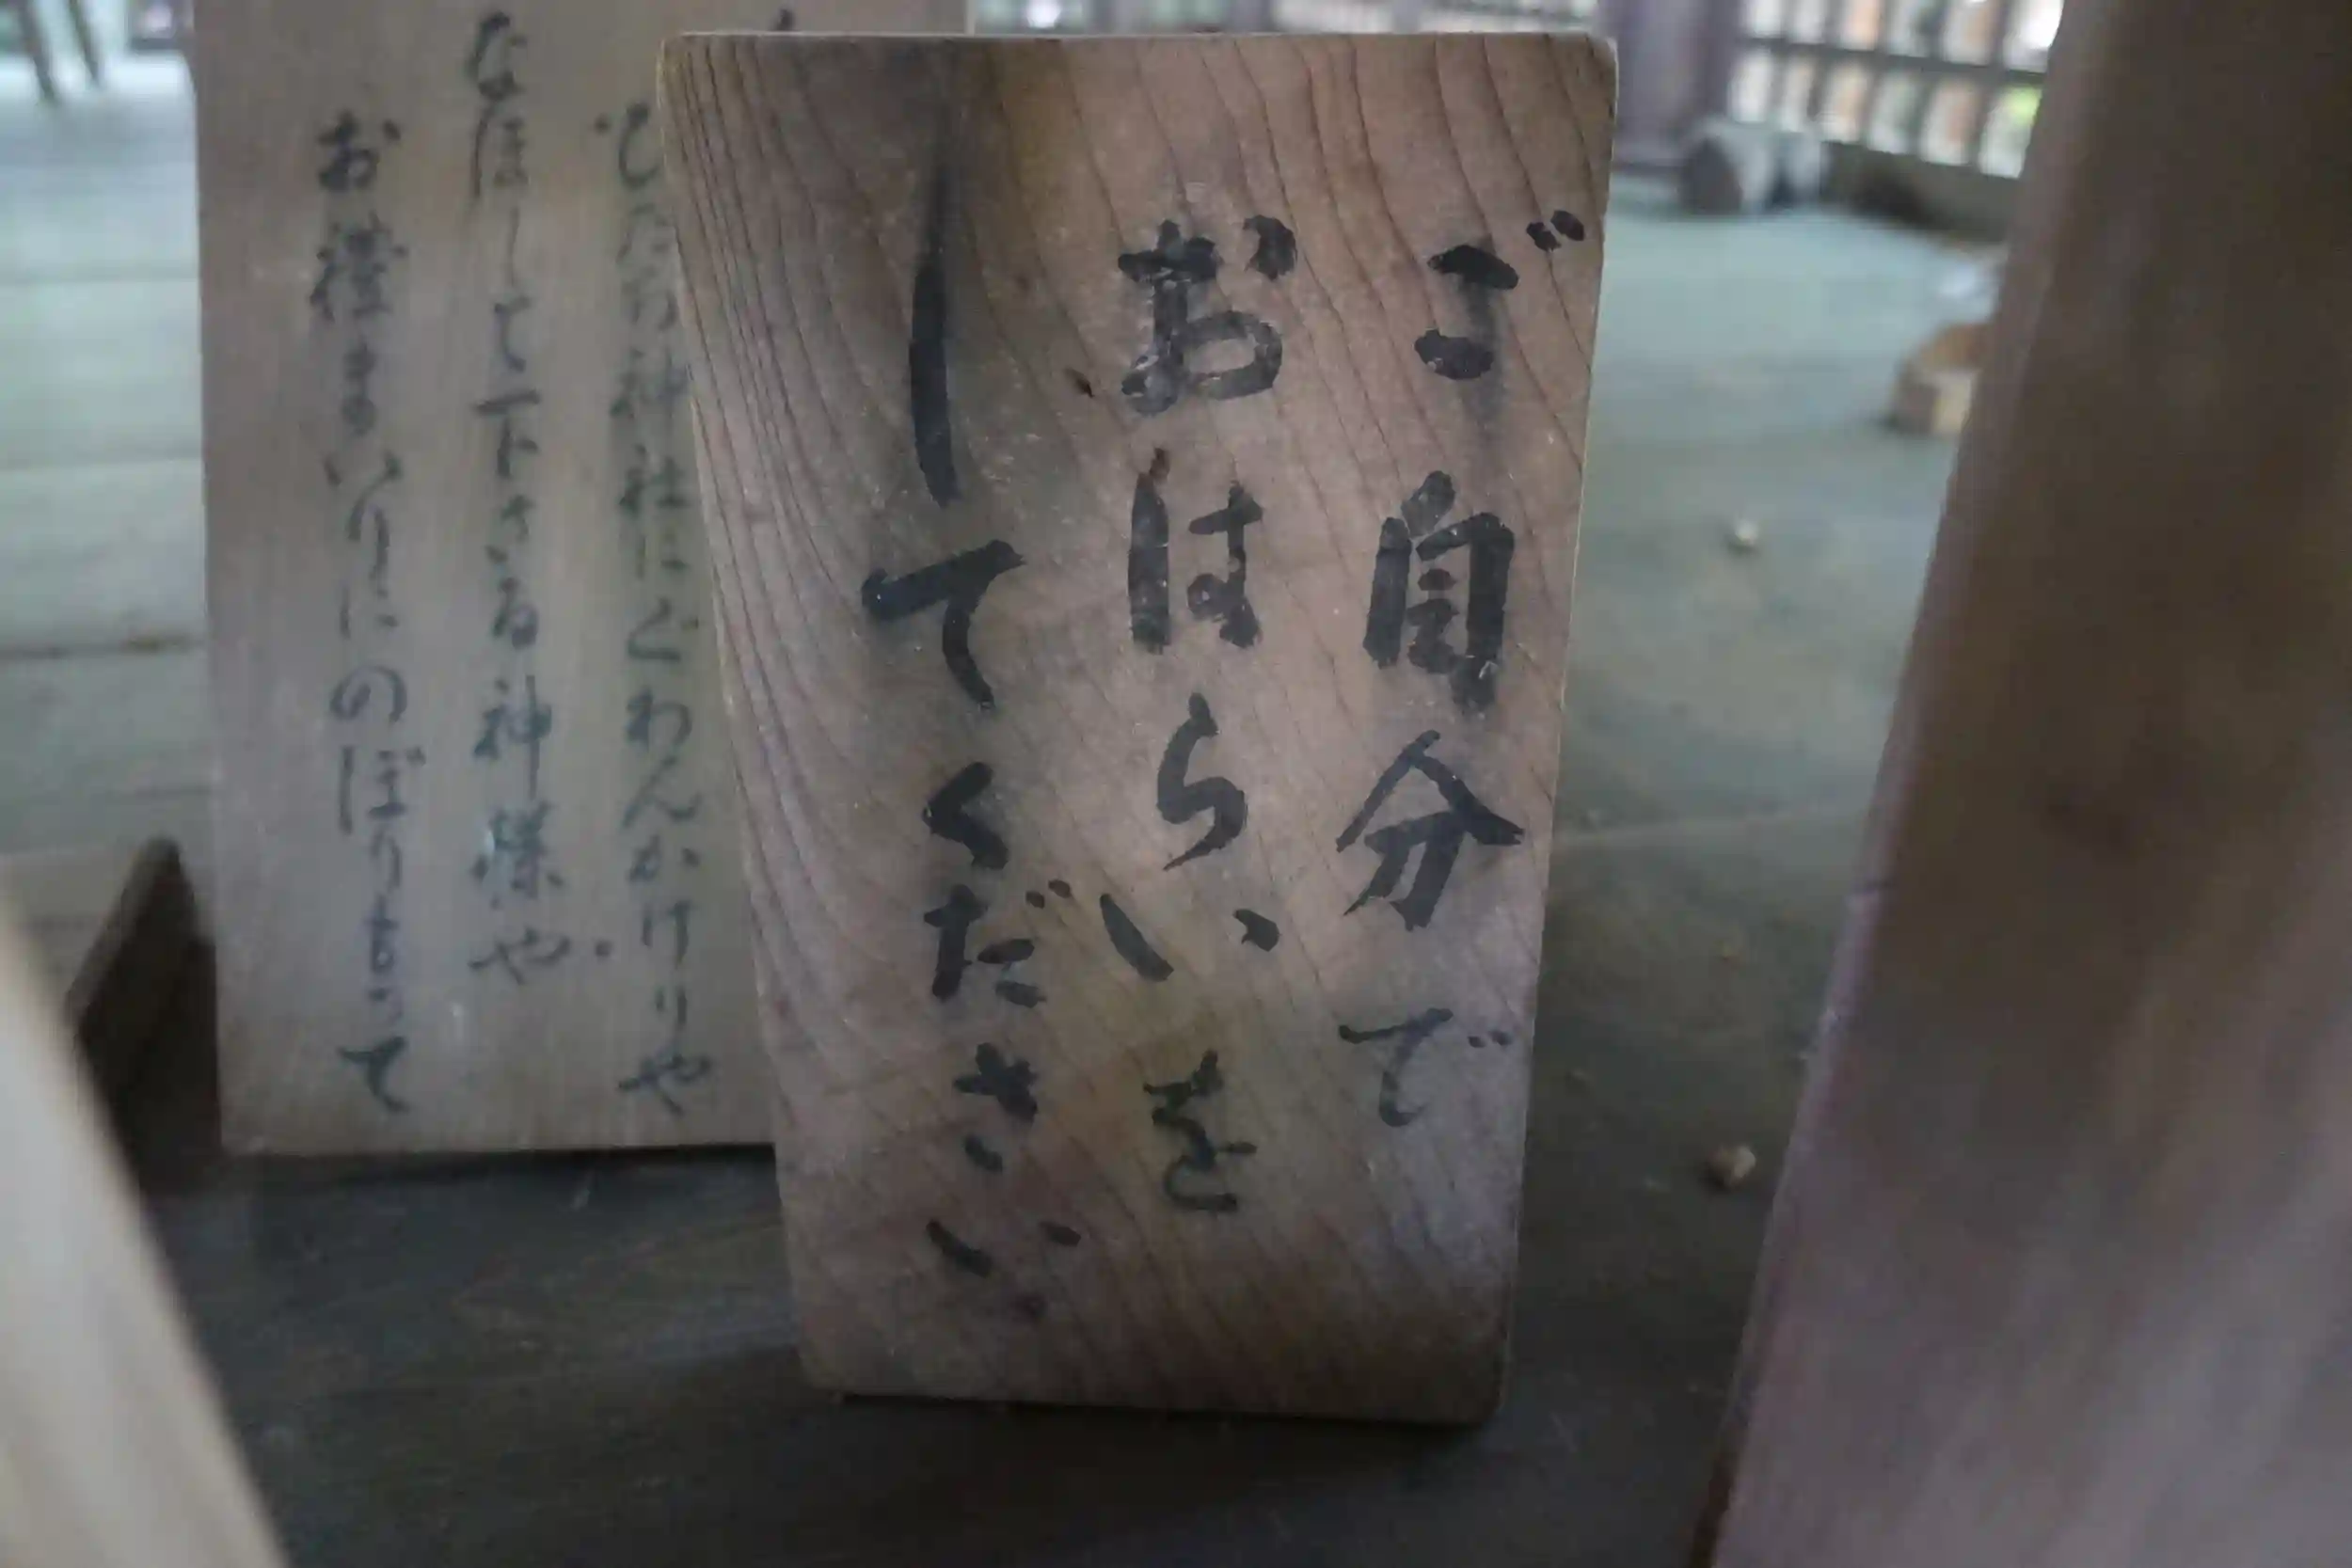 ご自分で
おはらいを
してください
ひたち神社にぐわんかけりや
なほして下さる神様や
お禮まいりにのぼりもって